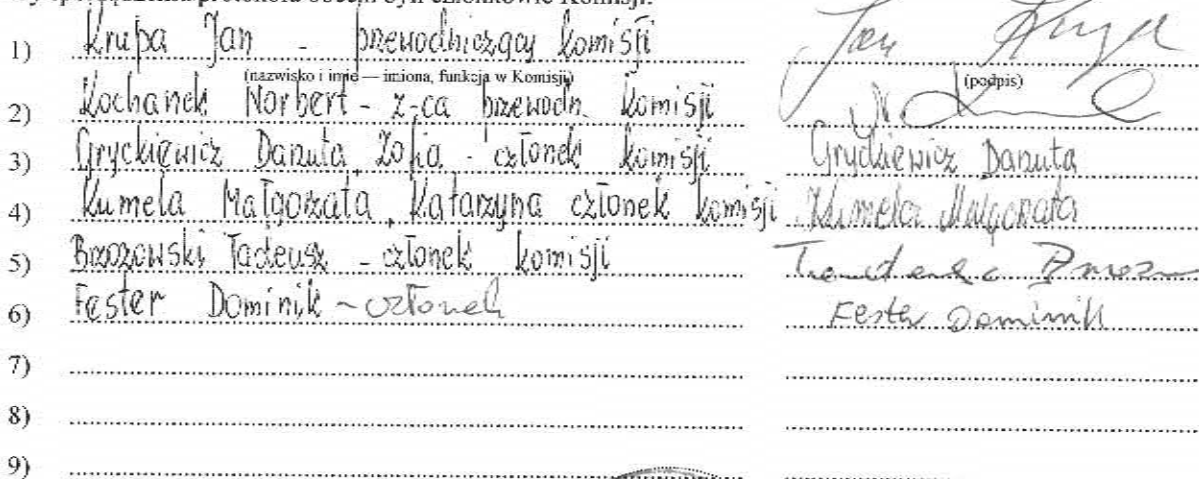 sporządzeniu protokołu obecni byli członkowie Komisji:
1) Krupa Jan - przewodniczący komisji Jan Krupa
(nazwisko i imię — imiona, funkcja w Komisji) (podpis)
2) Kochanek Norbert - z-ca przewodn. komisji
3) Gryckiewicz Danuta Zofia - członek komisji Gryckiewicz Danuta
4) Kumela Małgorzata, Katarzyna członek komisji Kumela Małgorzata
5) Brzozowski Tadeusz - członek komisji Tadeusz
6) Fester Dominik - członek Fester Dominik
7)
8)
9)